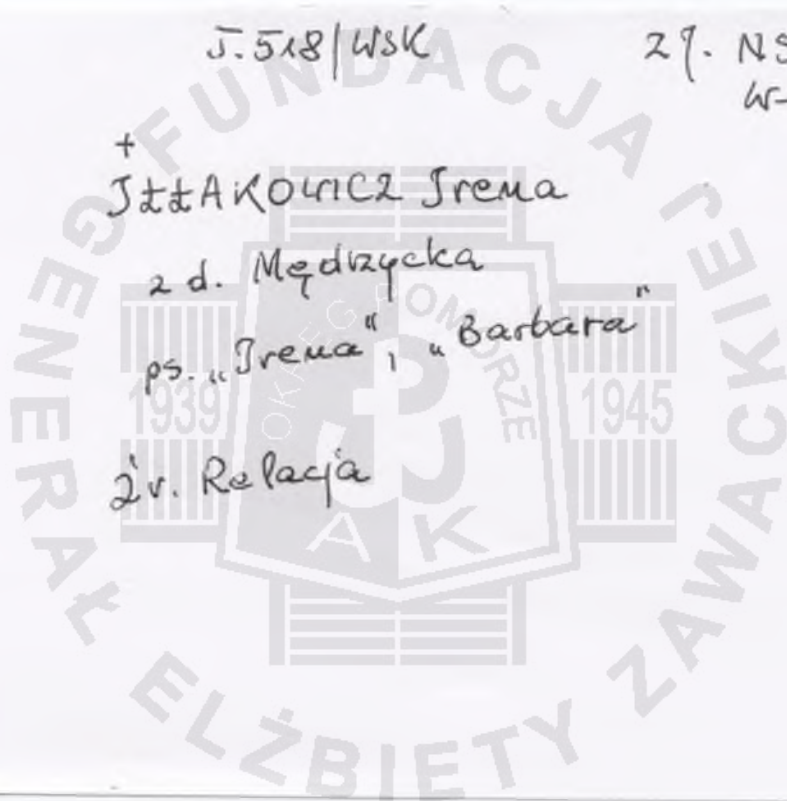 J.518/WSK
2ł. NS
W-
+
IŁŁAKOWICZ Irena
z d. Mędrzycka
ps. „Irena", „Barbara"
Źr. Relacja
FUNDACJA GENERAŁ ELŻBIETY ZAWACKIEJ
OKRĘG POMORZE
1939
1945
AK